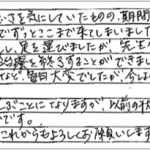 さを気にしていたものの、期間
ずっとここまで来てしまいまし
し、足を運びましたが、先生
治療を終えることができまし
など、皆日大変でしたが、今は
ぶことになりますが以前の状
です。
これからもよろしくお願いします